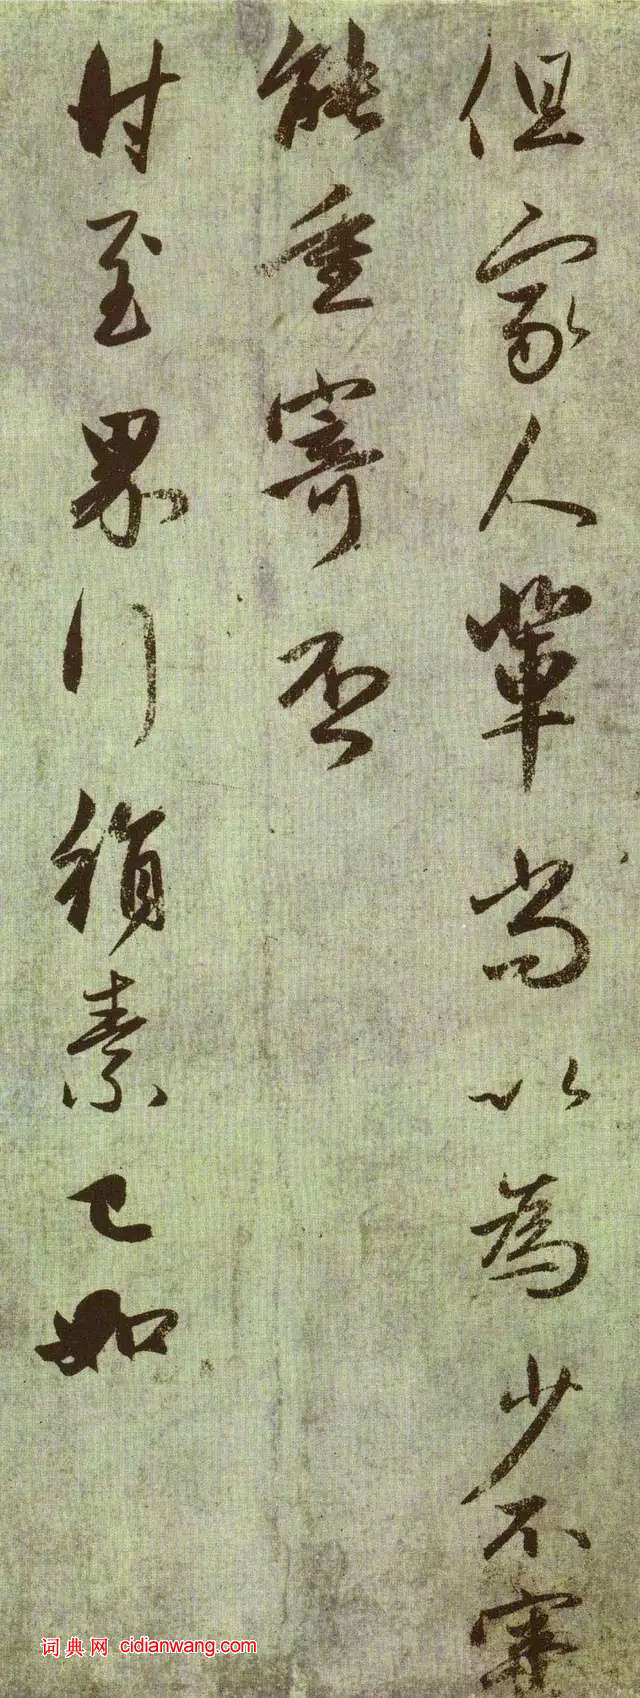 但家人輩尚以為少不審
能重寄否
付至界行絹素已如
词典网 cidianwang.com